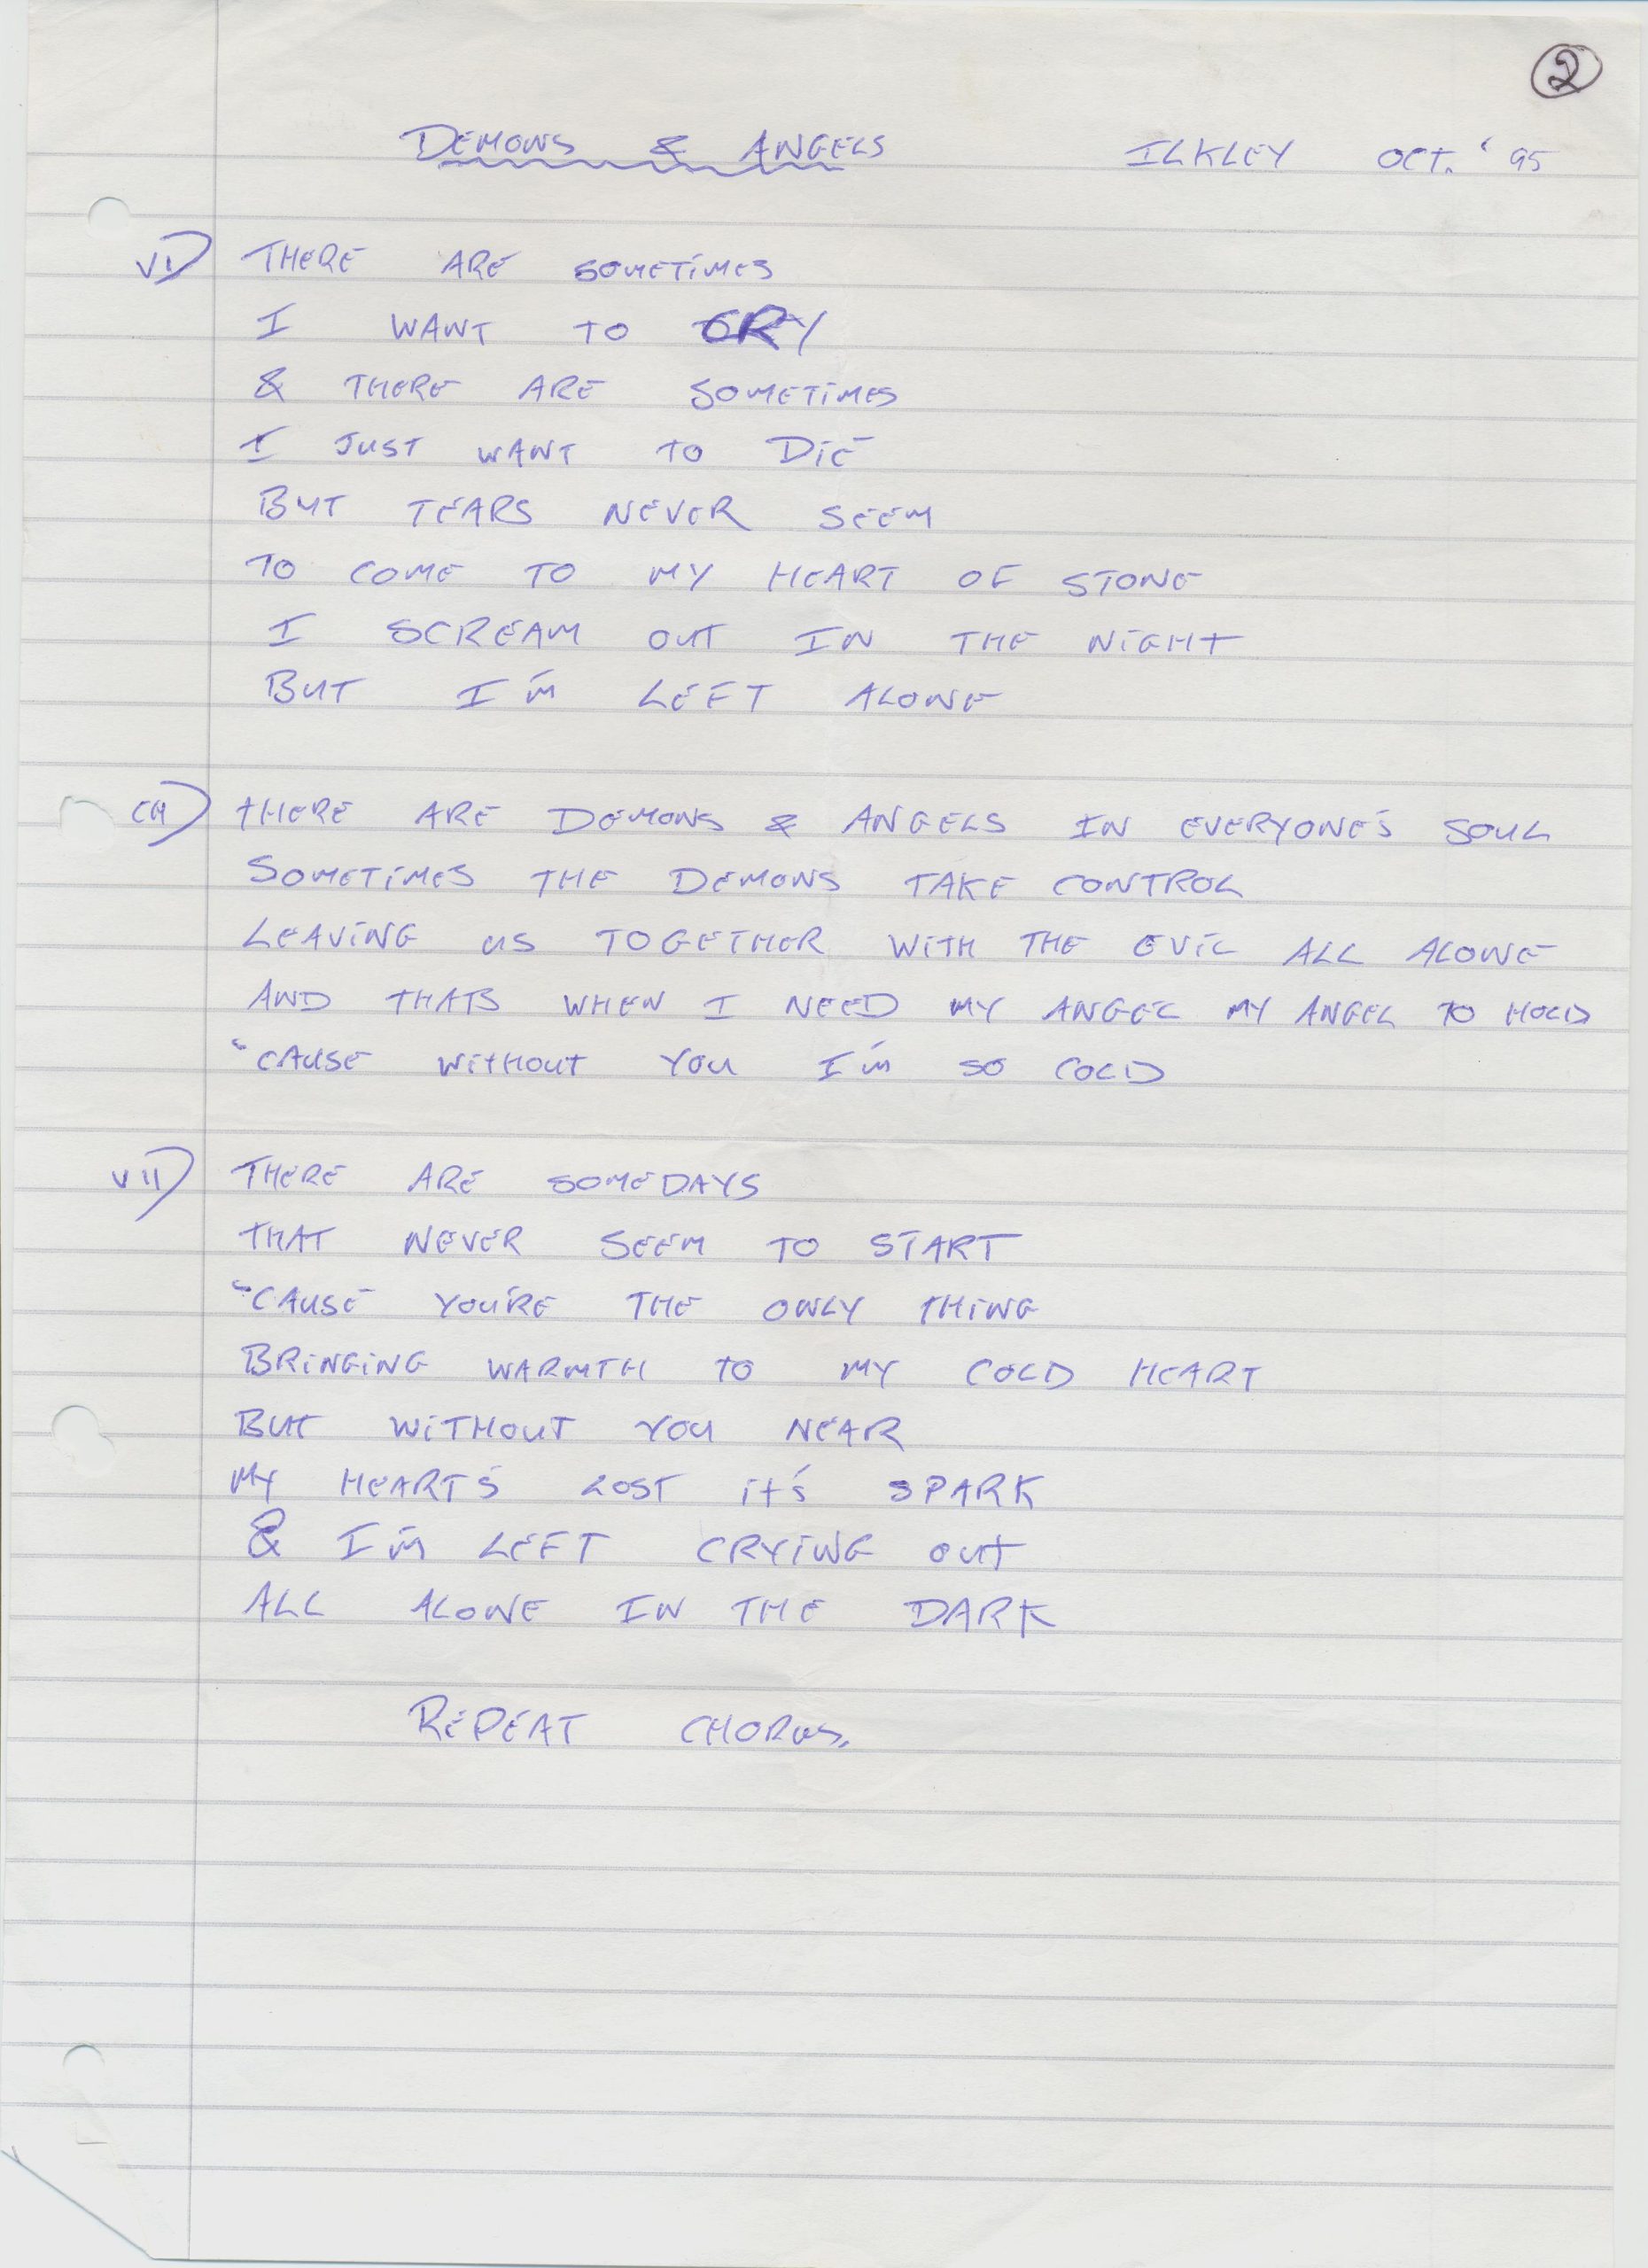 2
DEMONS & ANGELS ILKLEY OCT. '95
VI) THERE ARE SOMETIMES
I WANT TO CRY
& THERE ARE SOMETIMES
I JUST WANT TO DIE
BUT TEARS NEVER SEEM
TO COME TO MY HEART OF STONE
I SCREAM OUT IN THE NIGHT
BUT I'M LEFT ALONE
CH) THERE ARE DEMONS & ANGELS IN EVERYONE'S SOUL
SOMETIMES THE DEMONS TAKE CONTROL
LEAVING US TOGETHER WITH THE EVIL ALL ALONE
AND THATS WHEN I NEED MY ANGEL MY ANGEL TO HOLD
'CAUSE WITHOUT YOU I'M SO COLD
VII) THERE ARE SOMEDAYS
THAT NEVER SEEM TO START
'CAUSE YOU'RE THE ONLY THING
BRINGING WARMTH TO MY COLD HEART
BUT WITHOUT YOU NEAR
MY HEART'S LOST IT'S SPARK
& I'M LEFT CRYING OUT
ALL ALONE IN THE DARK
REPEAT CHORUS.